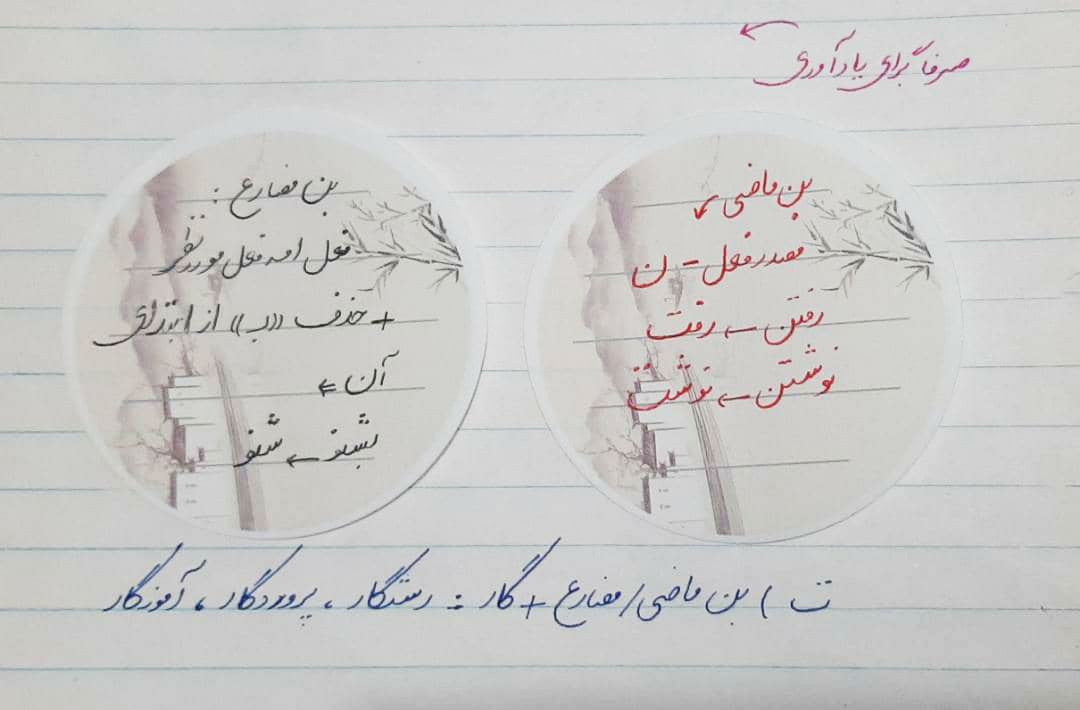 صرفاً برای یادآوری ←
بن ماضی ↙
مصدر فعل - ن
رفتن ← رفت
نوشتن ← نوشت
بن مضارع :
فعل امر فعل مورد نظر
+ حذف «ب» از ابتدای
آن ⇐
بشنو ← شنو
ت ) بن ماضی / مضارع + گار : رستگار ، پروردگار ، آموزگار